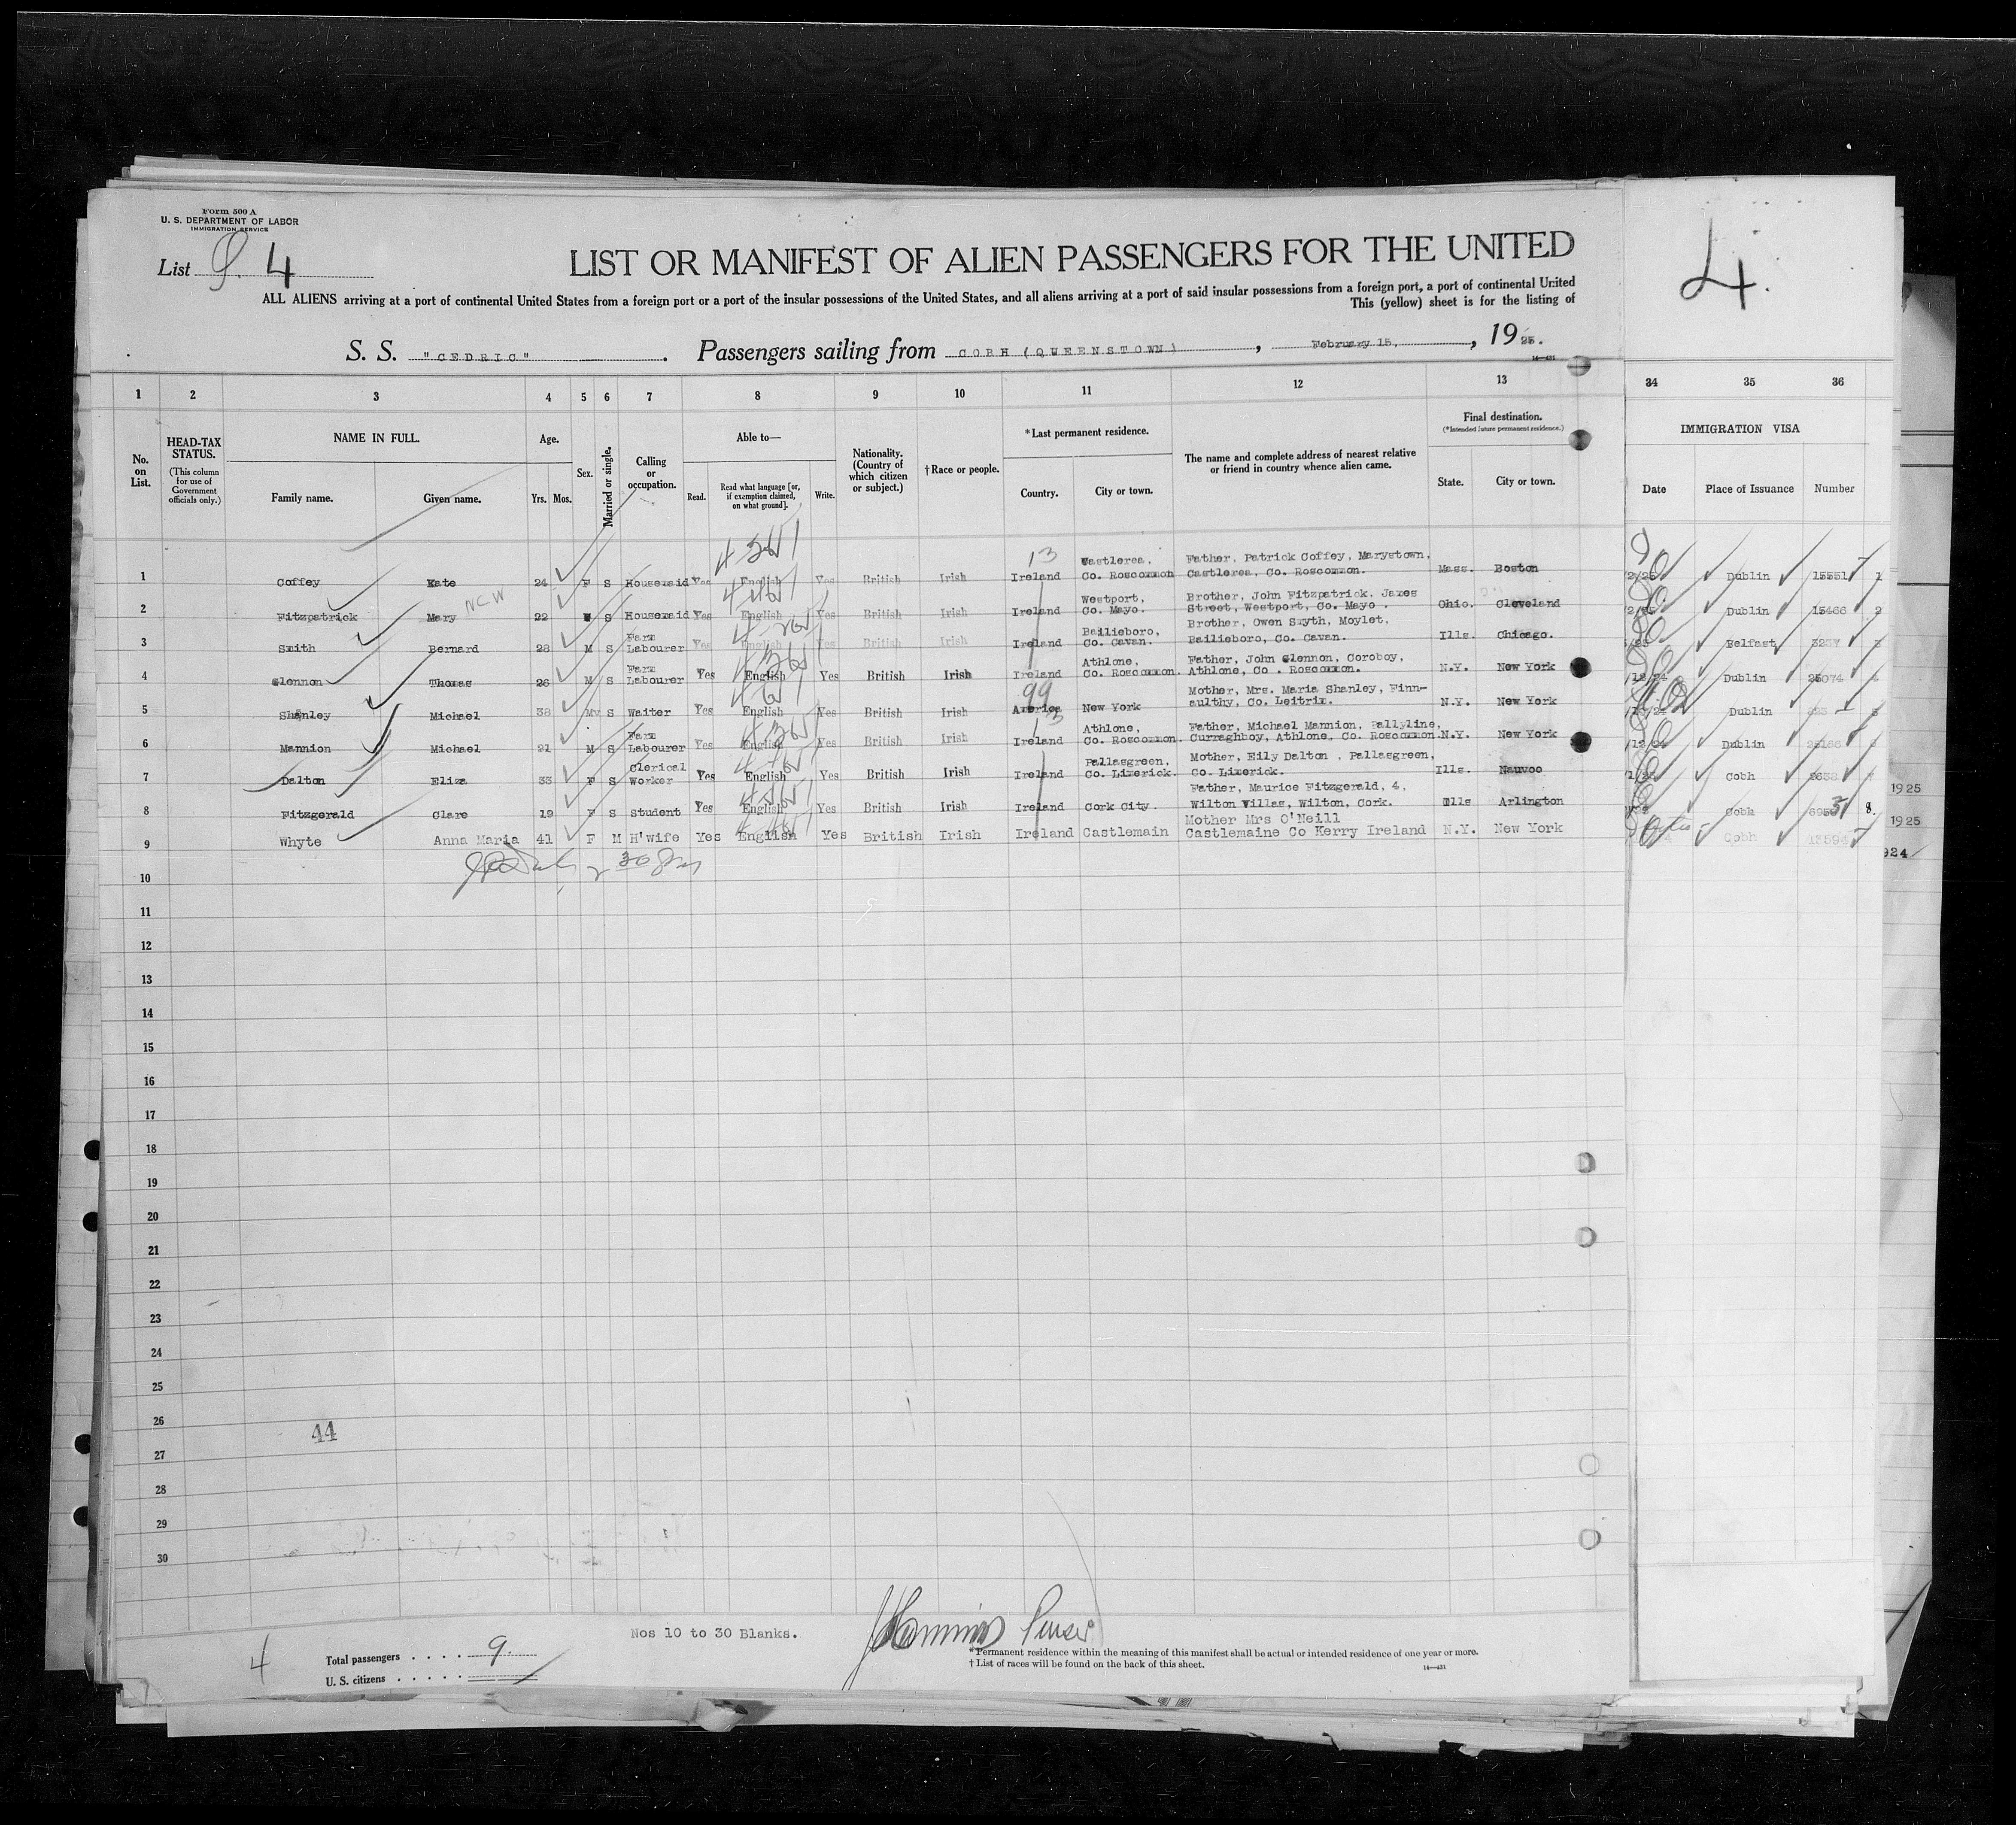 Form 500 A
U. S. DEPARTMENT OF LABOR
IMMIGRATION SERVICE
List 4
4.
LIST OR MANIFEST OF ALIEN PASSENGERS FOR THE UNITED
ALL ALIENS arriving at a port of continental United States from a foreign port or a port of the insular possessions of the United States, and all aliens arriving at a port of said insular possessions from a foreign port, a port of continental United
This (yellow) sheet is for the listing of
S. S. "CEDRIC" . Passengers sailing from COBH (QUEENSTOWN) , February 15, , 1925.
14—431
1 2 3 4 5 6 7 8 9 10 11 12 13 34 35 36
No. on List.
HEAD-TAX STATUS.
(This column for use of Government officials only.)
NAME IN FULL.
Family name. Given name.
Age.
Yrs. Mos.
Sex.
Married or single.
Calling or occupation.
Able to—
Read. Read what language [or, if exemption claimed, on what ground]. Write.
Nationality. (Country of which citizen or subject.)
†Race or people.
*Last permanent residence.
Country. City or town.
The name and complete address of nearest relative or friend in country whence alien came.
Final destination.
(*Intended future permanent residence.)
State. City or town.
IMMIGRATION VISA
Date Place of Issuance Number
1 Coffey Kate 24 F S Housemaid Yes English Yes British Irish Ireland Castlerea, Co. Roscommon Father, Patrick Coffey, Marystown, Castlerea, Co. Roscommon. Mass. Boston Dublin 15551 1
2 Fitzpatrick Mary NCW 22 S Housemaid Yes English Yes British Irish Ireland Westport, Co. Mayo. Brother, John Fitzpatrick. James Street, Westport, Co. Mayo. Ohio. Cleveland Dublin 15466 2
3 Smith Bernard 28 M S Farm Labourer Yes English Yes British Irish Ireland Bailieboro, Co. Cavan. Brother, Owen Smyth, Moylet, Bailieboro, Co. Cavan. Ills. Chicago. Belfast 3237 3
4 Glennon Thomas 26 M S Farm Labourer Yes English Yes British Irish Ireland Athlone, Co. Roscommon. Father, John Glennon, Coroboy, Athlone, Co. Roscommon. N.Y. New York Dublin 25074 4
5 Shanley Michael 38 M S Waiter Yes English Yes British Irish America New York Mother, Mrs. Maria Shanley, Finnaulthy, Co. Leitrim. N.Y. New York Dublin 5
6 Mannion Michael 21 M S Farm Labourer Yes English Yes British Irish Ireland Athlone, Co. Roscommon. Father, Michael Mannion, Pallyline, Curraghboy, Athlone, Co. Roscommon. N.Y. New York Dublin
7 Dalton Eliza 33 F S Clerical Worker Yes English Yes British Irish Ireland Pallasgreen, Co. Limerick. Mother, Eily Dalton, Pallasgreen, Co. Limerick. Ills. Nauvoo Cobh
8 Fitzgerald Clare 19 F S Student Yes English Yes British Irish Ireland Cork City. Father, Maurice Fitzgerald, 4, Wilton Villas, Wilton, Cork. Ills Arlington Cobh 8.
9 Whyte Anna Maria 41 F M H'wife Yes English Yes British Irish Ireland Castlemain Mother Mrs O'Neill Castlemaine Co Kerry Ireland N.Y. New York Cobh 13594
1925
1925
924
10
11
12
13
14
15
16
17
18
19
20
21
22
23
24
25
26
27
28
29
30
44
Nos 10 to 30 Blanks.
Purser
4
Total passengers . . . . 9.
U. S. citizens . . . . .
*Permanent residence within the meaning of this manifest shall be actual or intended residence of one year or more.
† List of races will be found on the back of this sheet.
14—431